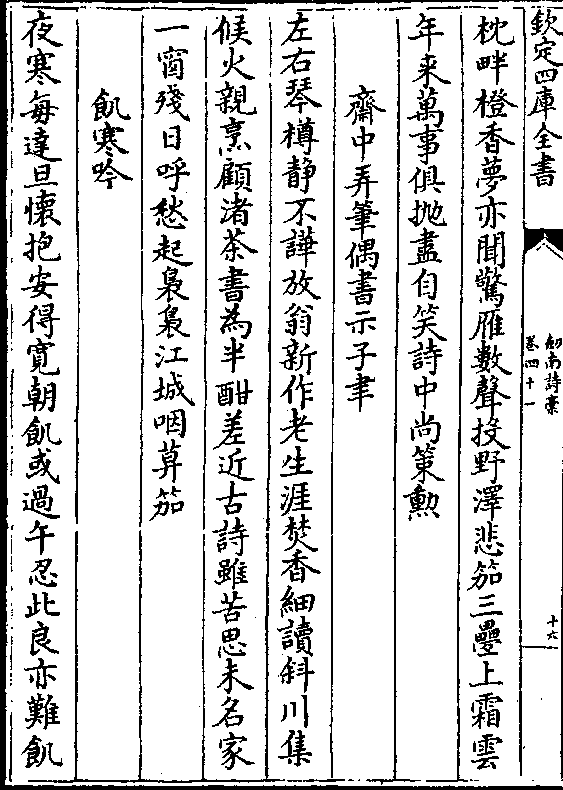 欽定四庫全書
劒南詩槀
卷四十一
十六
枕畔橙香夢亦聞驚雁數聲投野澤悲笳三疊上霜雲
年来萬事俱抛盡自笑詩中尚策勲
齋中弄筆偶書示子聿
左右琴樽静不譁放翁新作老生涯焚香細讀斜川集
候火親烹顧渚茶書為半酣差近古詩雖苦思未名家
一窗殘日呼愁起裊裊江城咽莫笳
飢寒吟
夜寒每達旦懷抱安得寛朝飢或過午忍此良亦難飢